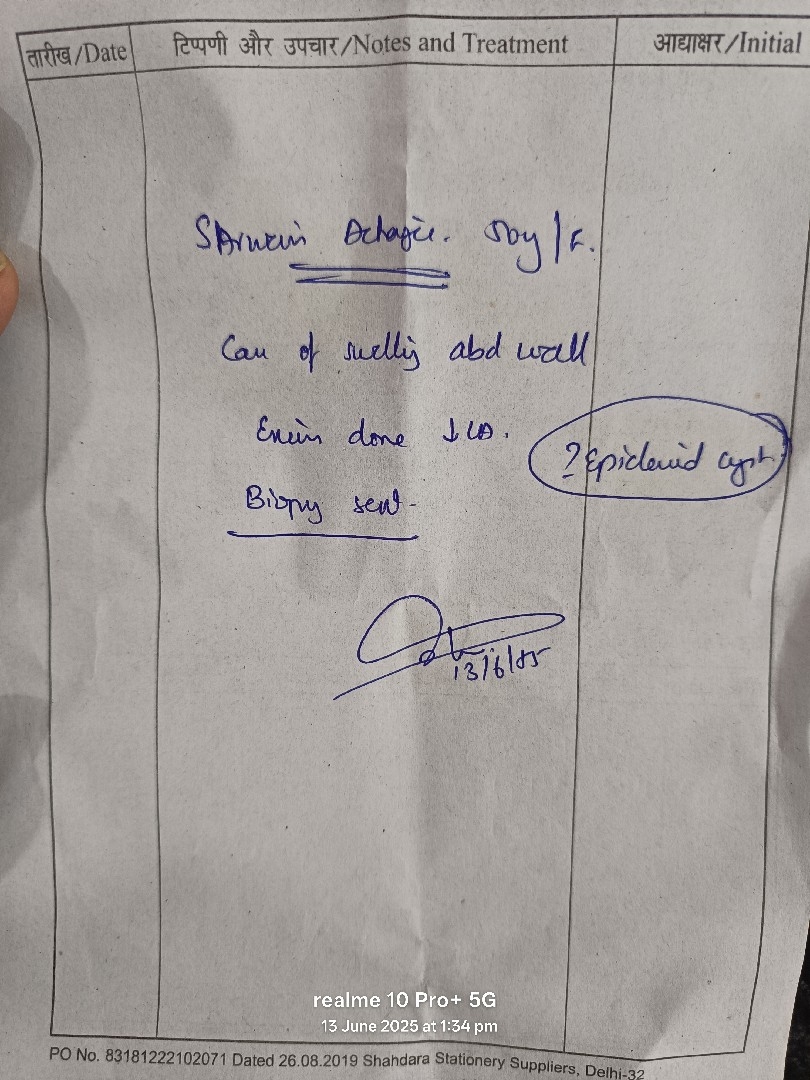 तारीख/Date
टिप्पणी और उपचार/Notes and Treatment
आद्याक्षर/Initial
50y/F.
Case of swelling abd wall
Excisn done ↓ LA.
? Epidermoid cyst
Biopsy sent
13/6/25
realme 10 Pro+ 5G
13 June 2025 at 1:34 pm
PO No. 83181222102071 Dated 26.08.2019 Shahdara Stationery Suppliers, Delhi-32